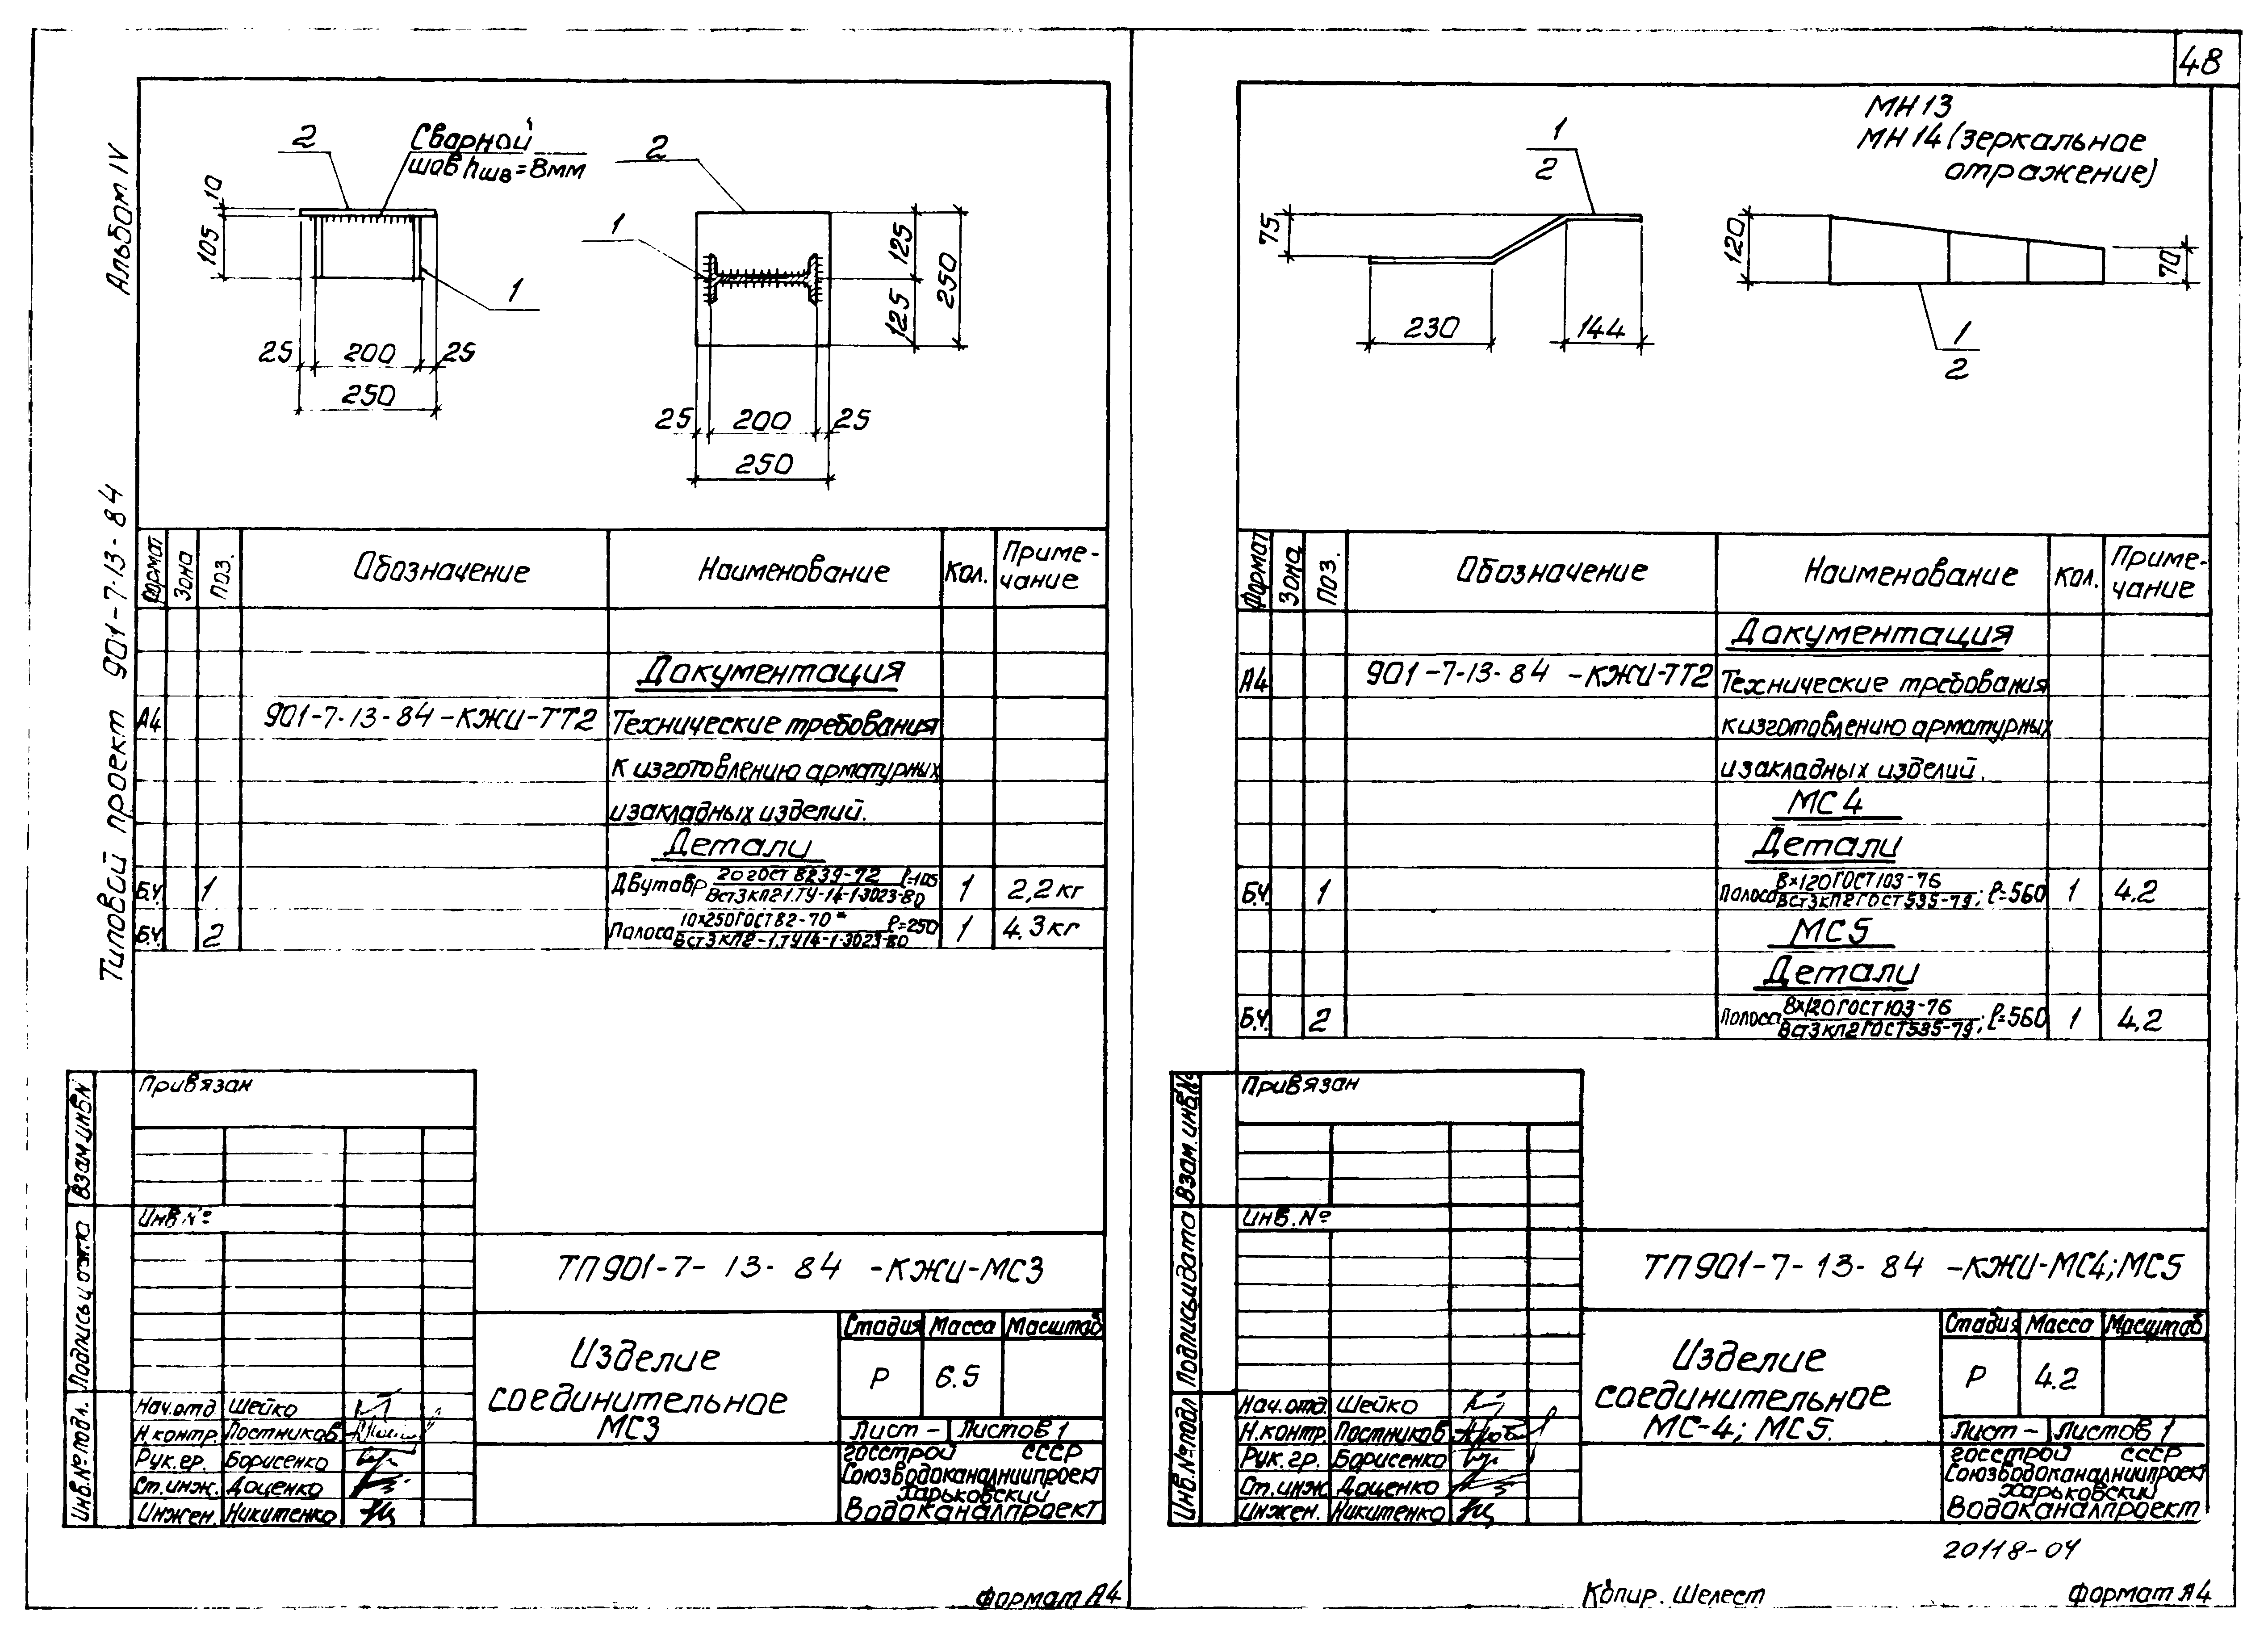 48
Альбом IV
Типовой проект 901-7-13-84
2
Сварной
шов hшв=8мм
2
1
1
10
105
25
200
25
250
125
125
250
25
200
25
250
Формат
Зона
Поз.
Обозначение
Наименование
Кол.
Приме-
чание
Документация
А4
901-7-13-84-КЖИ-ТТ2
Технические требования
к изготовлению арматурных
и закладных изделий.
Детали
Б.Ч.
1
Двутавр 20 ГОСТ 8239-72 ℓ=105
ВСт3кп2-1.ТУ-14-1-3023-80
1
2,2 кг
Б.Ч.
2
Полоса 10х250 ГОСТ 82-70* ℓ=250
ВСт3кп2-1.ТУ14-1-3023-80
1
4.3 кг
Привязан
Инв №
Взам инв N
Подпись и дата
Инв.№ подл.
ТП901-7-13-84 -КЖИ-МС3
Изделие
соединительное
МС3
Стадия Масса Масштаб
Р 6.5
Лист - Листов 1
Нач.отд Шейко
Н.контр. Постников
Рук.гр. Борисенко
Ст.инж. Доценко
Инжен. Никитенко
Госстрой СССР
Союзводоканалниипроект
Харьковский
Водоканалпроект
Формат А4
МН13
МН14 (зеркальное
отражение)
1
2
75
230
144
120
70
1
2
Формат
Зона
Поз.
Обозначение
Наименование
Кол.
Приме-
чание
Документация
А4
901-7-13-84 -КЖИ-ТТ2
Технические требования
к изготовлению арматурных
и закладных изделий.
МС4
Детали
Б.Ч.
1
Полоса 8х120 ГОСТ 103-76
ВСт3кп2 ГОСТ 535-79; ℓ=560
1
4,2
МС5
Детали
Б.Ч.
2
Полоса 8х120 ГОСТ 103-76
ВСт3кп2 ГОСТ 535-79; ℓ=560
1
4,2
Привязан
Инв.№
Взам.инв.№
Подпись и дата
Инв.№ подл
ТП901-7-13-84 -КЖИ-МС4;МС5
Изделие
соединительное
МС-4; МС5.
Стадия Масса Масштаб
Р 4.2
Лист - Листов 1
Нач.отд. Шейко
Н.контр. Постников
Рук.гр. Борисенко
Ст.инж Доценко
Инжен. Никитенко
Госстрой СССР
Союзводоканалниипроект
Харьковский
Водоканалпроект
20118-04
Копир. Шелест
Формат А4